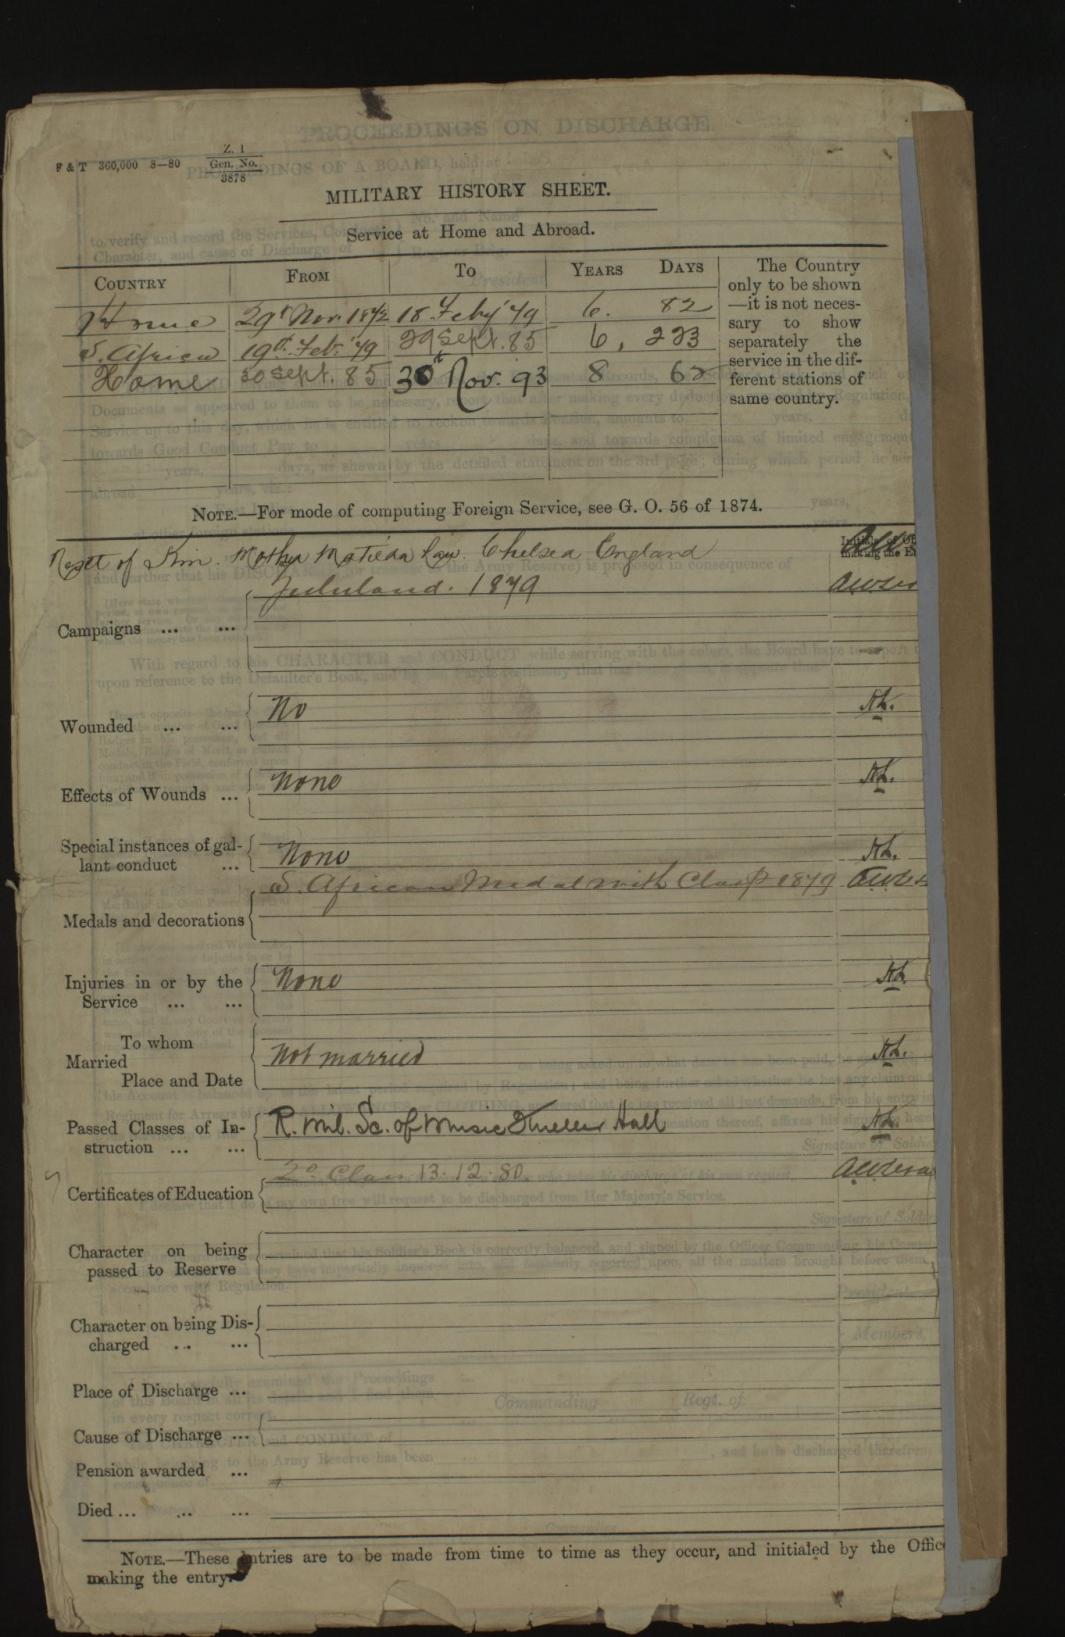 PROCEEDINGS ON DISCHARGE.
F & T 360,000 8—80 Z. 1
Gen. No.
3878
MILITARY HISTORY SHEET.
Service at Home and Abroad.
COUNTRY FROM TO YEARS DAYS
Home 29th Nov. 1872 18 Feby '79 6. 82
S. Africa 19th Feb. '79 29 Sept. 85 6, 223
Home 30 Sept. 85 30th Nov. 93 8 62
The Country
only to be shown
—it is not neces-
sary to show
separately the
service in the dif-
ferent stations of
same country.
NOTE.—For mode of computing Foreign Service, see G. O. 56 of 1874.
Next of Kin. Mother Matilda Chelsea England
Zululand. 1879
Campaigns ... ...
Wounded ... ... No
Effects of Wounds ... None
Special instances of gal-
lant conduct ... None
S. African Medal with Clasp 1879
Medals and decorations
Injuries in or by the
Service ... ... None
To whom
Married Not married
Place and Date
Passed Classes of In-
struction ... ... R. Mil. Sc. of Music Kneller Hall
2° Class 13.12.80.
Certificates of Education
Character on being
passed to Reserve
Character on being Dis-
charged ... ...
Place of Discharge ...
Cause of Discharge ...
Pension awarded ...
Died ... ... ...
NOTE.—These entries are to be made from time to time as they occur, and initialed by the Offic
making the entry.